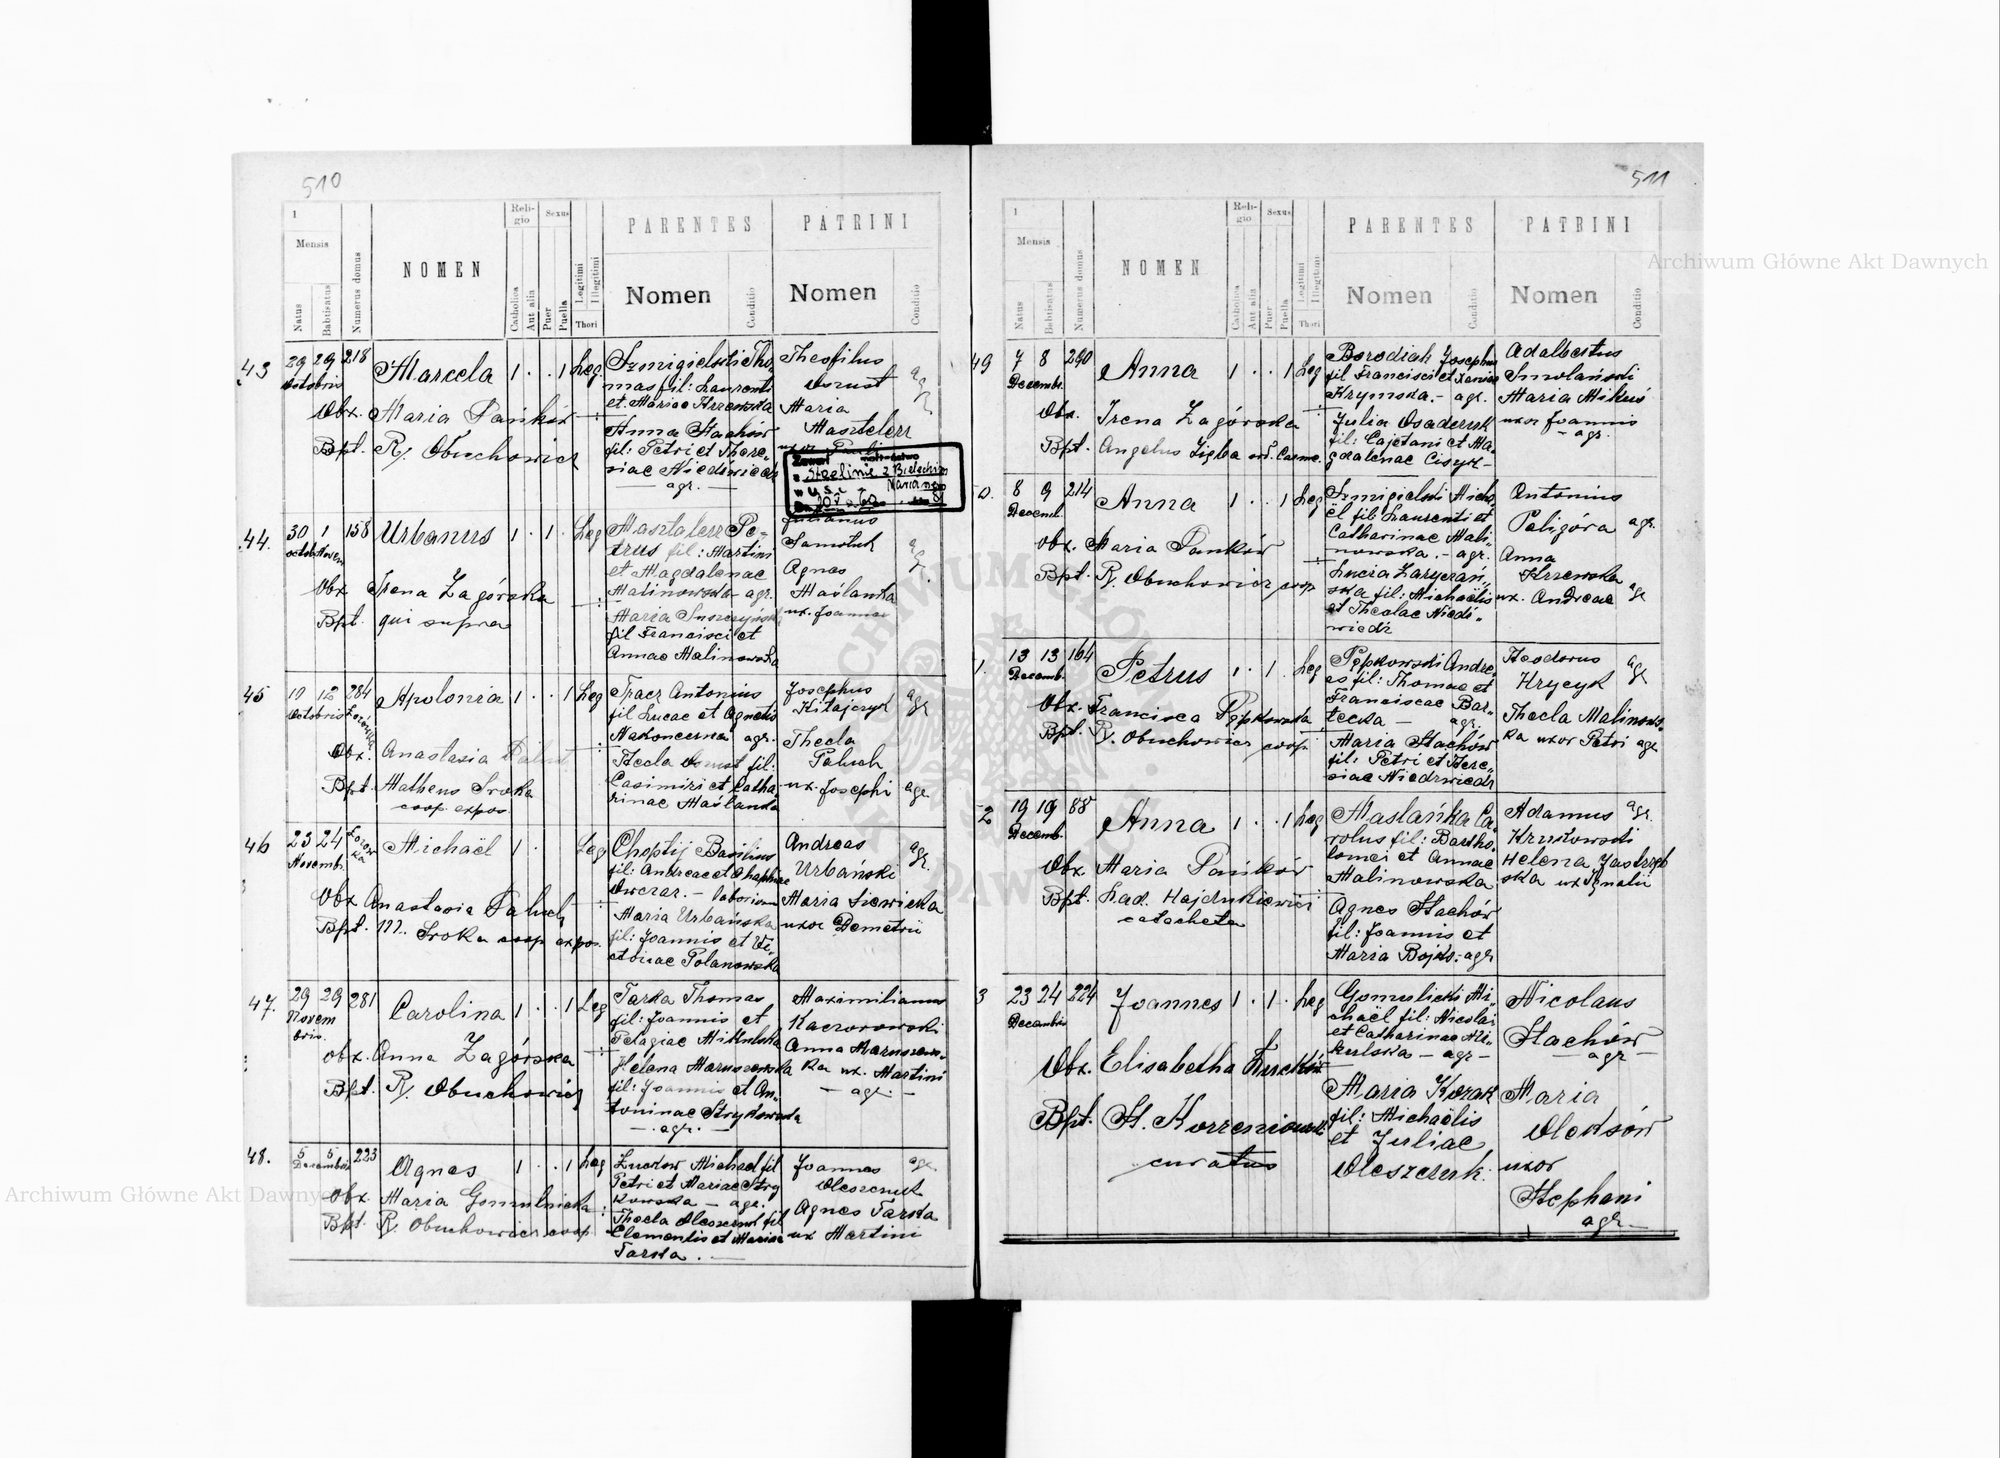 510
1
Mensis
Natus
Babtisatus
Numerus domus
NOMEN
Religio
Catholica
Aut alia
Sexus
Puer
Puella
Legitimi
Illegitimi
Thori
PARENTES
Nomen
Conditio
PATRINI
Nomen
Conditio
43
29 29 218
Octobris
Marcela 1 . . 1 Leg
Obx. Maria Pańków
Bpt. R. Obuchowicz
Szmigielski Tho-
mas fil: Laurenti
et Mariae Krzewska
Anna Stachów
fil: Petri et There-
siae Niedźwiedź
agr.
Theofilus
Maria
Masztelerz
agr.
Zawarł małżeństwo
w Steclinie z Bieleckim
w U.S.C. Marianem
44.
30 1 158
Octob. Novem
Urbanus 1 . 1 . Leg
Obx Irena Zagórska
Bpt. qui supra
Masztalerz Pe-
trus fil: Martini
et Magdalenae
Malinowska - agr.
Maria
fil Francisci et
Annae Malinowska
Julianus
Samoluk
Agnes
Maślanka
ux. Joannis
agr.
45
10 12 284
Octobris
Apolonia 1 . . 1 Leg
Obx. Anastasia Paluch
Bpt. Matheus Sroka
coop. expos.
Tracz Antonius
fil Lucae et Agnetis
Nakoneczna agr.
Thecla fil:
Casimiri et Catha-
rinae Maślanka
Josephus
Kitajczyk
Thecla
Paluch
ux. Josephi
agr.
agr.
46
23 24
Novemb.
Michaël 1 . Leg
Obx Anastasia Paluch
Bpt. M. Sroka coop expos.
Choptij Basilius
fil: Andreae et Ahaphiae
Owczar. -
Maria Urbańska
fil: Joannis et Vi-
ctoriae Polanowska
Andreas
Urbański
Maria Siewicka
uxor Demetrii
agr.
47.
29 29 281
Novem
bris.
Carolina 1 . . 1 Leg
obx. Anna Zagórska
Bpt. R. Obuchowicz
Tarka Thomas
fil: Joannis et
Pelagiae Mikulska
Helena Maruszewska
fil: Joannis et An-
toninae Strykowska
agr.
Maximilianus
Kaczorowski
Anna Maruszews-
ka ux. Martini
- agr. -
48.
5 5 223
Decembris
Agnes 1 . . 1 Leg
obx. Maria Gomulnicka
Bpt. R. Obuchowicz coop
Zuckow Michael fil
Petri et Mariae Stry
kowska - agr.
Thecla Oleszczuk fil
Clementis et Mariae
Tarka.
Joannes
Oleszczuk
Agnes Tarska
ux Martini
agr.
511
1
Mensis
Natus
Babtisatus
Numerus domus
NOMEN
Religio
Catholica
Aut alia
Sexus
Puer
Puella
Legitimi
Illegitimi
Thori
PARENTES
Nomen
Conditio
PATRINI
Nomen
Conditio
49
7 8 290
Decemb.
Anna 1 . . 1 Leg
Obx. Irena Zagórska
Bpt. Angelus Ziȩba ord. Carme.
Borodiak Josephus
fil Francisci et Xaniae
Krymska. - agr.
Julia Osadczuk
fil: Cajetani et Ma-
gdalenae Cisyk -
Adalbertus
Smolański
Maria Mikuś
uxor Joannis
- agr.
8 9 214
Decemb.
Anna 1 . . 1 Leg
obx. Maria Pańków
Bpt. R. Obuchowicz coop
Szmigielski Micha-
ël fil: Laurenti et
Catharinae Mali-
nowska. - agr.
Lucia Zaryczań-
ska fil: Michaëlis
et Theclae Niedź-
wiedź
Antonius
Paligóra agr.
Anna
Krzewska
ux. Andreae agr
1.
13 13 164
Decemb.
Petrus 1 . 1 . Leg
Obx. Francisca Pępkowska
Bpt. R. Obuchowicz coop
Pępkowski Andre-
as fil: Thomae et
Franciscae Bar-
tecka - agr.
Maria Stachów
fil: Petri et There-
siae Niedzwiedź
Theodorus
Hrycyk
Thecla Malinows-
ka uxor Petri agr.
agr
2
19 19 88
Decemb.
Anna 1 . . 1 Leg
Obx Maria Pańków
Bpt. Lad. Hajdukiewicz
catecheta
Maslańka Ca-
rolus fil: Bartho-
lomei et Annae
Malinowska
Agnes Stachów
fil: Joannis et
Maria Bojko. agr
Adamus agr.
Krukowski
Helena Jastrzęb
ska ux Ignatii
3
23 24 224
Decembris
Joannes 1 . 1 . Leg
Obx. Elisabetha
Bpt. St. Korzeniowski
curatus
Gomulicki Mi-
chaël fil: Nicolai
et Catharinae Mi-
kulska - agr -
Maria Kozak
fil: Michaëlis
et Juliae
Oleszczuk.
Nicolaus
Stachów
- agr -
Maria
Oleksów
uxor
Stephani
agr.
Archiwum Główne Akt Dawnych
Archiwum Główne Akt Dawnych
ARCHIWUM GŁÓWNE AKT DAWNYCH